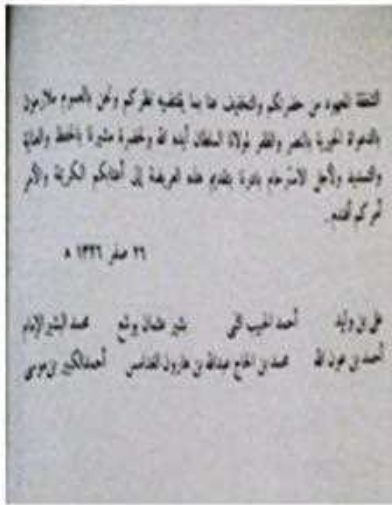 الشفقة المعهودة من حضرتكم والتخفيف عنا بما يقتضيه نظركم ونحن بالعموم ملازمون
بالدعوات الخيرية بالنصر والظفر لمولانا السلطان أيده الله ولحضرة مشيرنا بالحفظ
والتسديد ولأجل الاسترحام بادرنا بتقديم هذه العريضة إلى أعتابكم الكريمة والأمر
أمركم أفندم.
٢٦ صفر ١٣٢٦ ه
علي بن وليد أحمد الحبيب التني بشير عثمان محمد البشير الإمام
أحمد بن عون الله محمد بن الحاج عبدالله بن هارون الغدامسي أحمد الكبير بن موسى